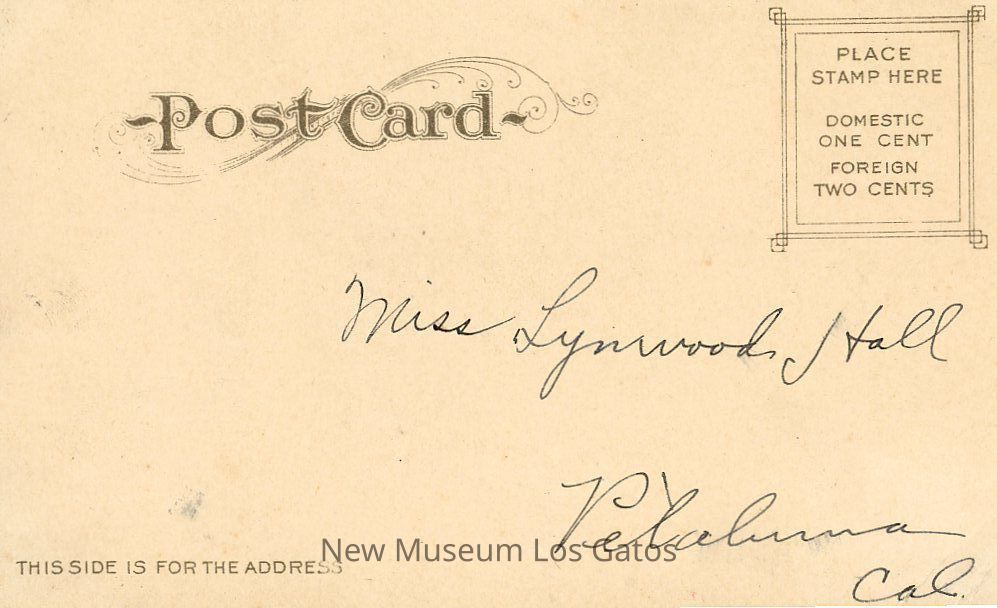 Post Card
PLACE
STAMP HERE
DOMESTIC
ONE CENT
FOREIGN
TWO CENTS
Miss Lynwood Hall
Petaluma
Cal.
THIS SIDE IS FOR THE ADDRESS
New Museum Los Gatos